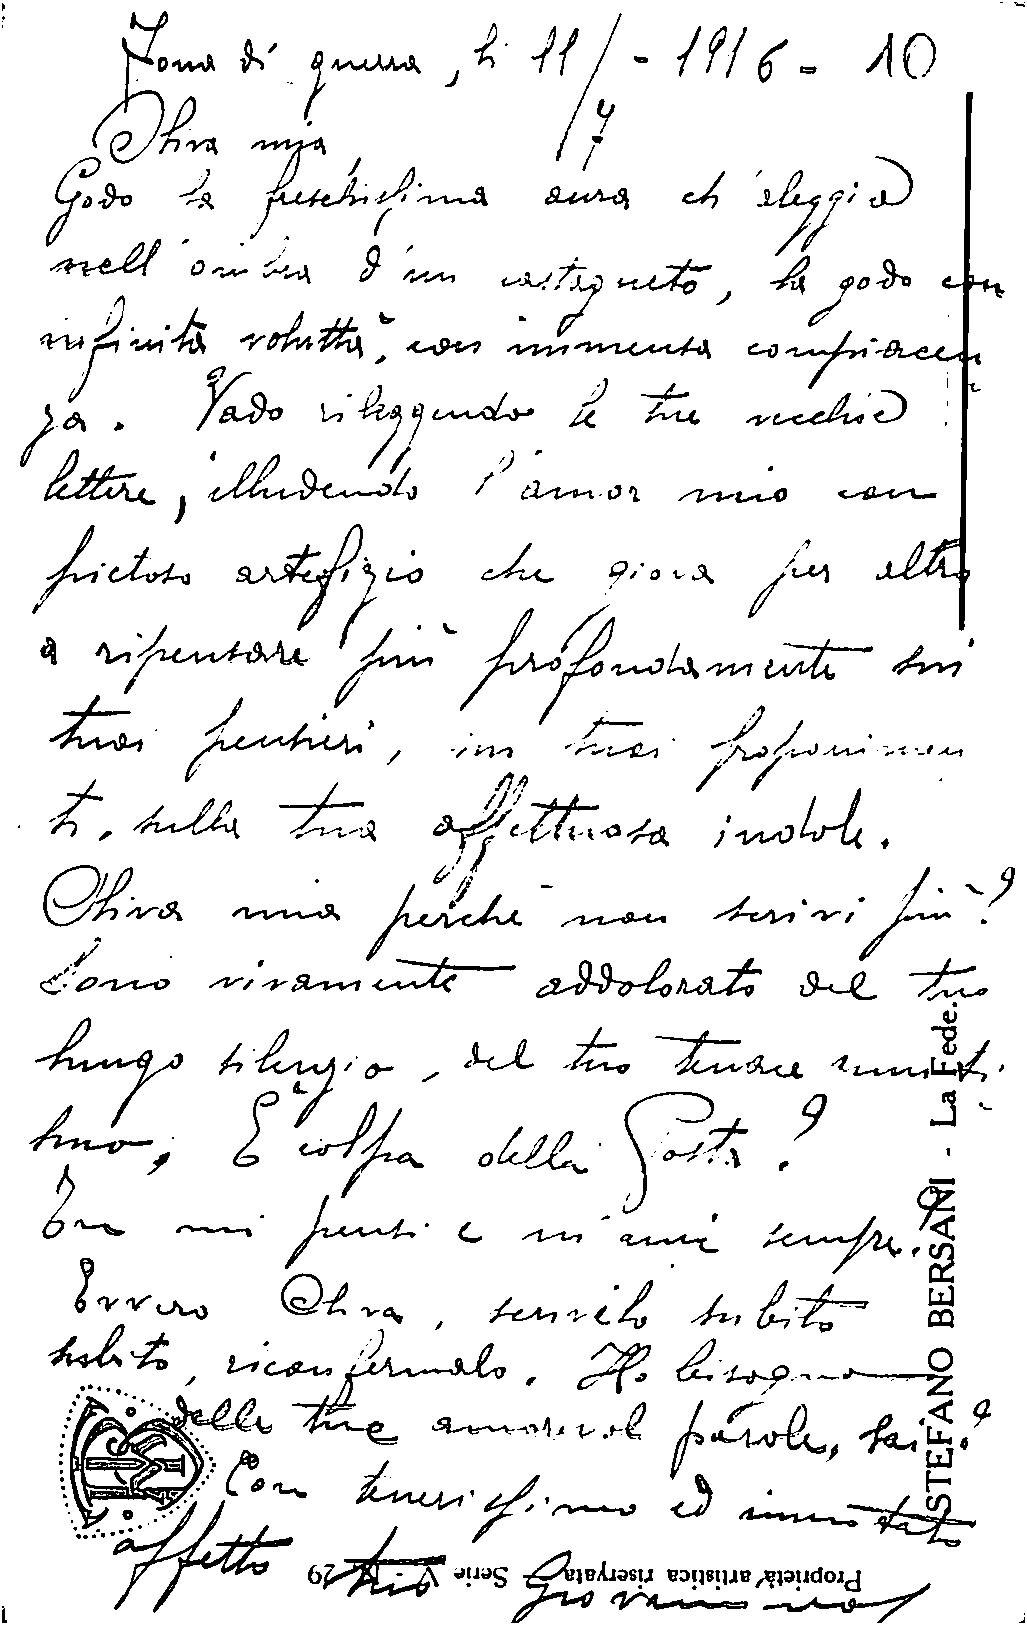 Zona di guerra, li 11/7 - 1916 - 10
Oliva mia,
Godo la freschissima aura ch'aleggia
nell'ombra d'un castagneto, la godo con
infinita voluttà, con immensa compiacen
za. Vado rileggendo le tue vecchie
lettere, illudendo l'amor mio con
pietoso artefizio che giova per altro
a ripensare più profondamente sui
tuoi pensieri, sui tuoi proponimen
ti, sulla tua affettuosa indole.
Oliva mia perchè non scrivi più?
Sono vivamente addolorato del tuo
lungo silenzio, del tuo tenace
È colpa della Posta?
Tu mi pensi e m'ami sempre?
Evvero Oliva, scrivilo subito
subito, riconfermalo. Ho bisogno
delle tue amorevol parole, sai?
Con tenerissimo ed immutato
affetto tuo Giovannino
STEFANO BERSANI - La Fede.
Proprietà artistica riservata - Serie 29